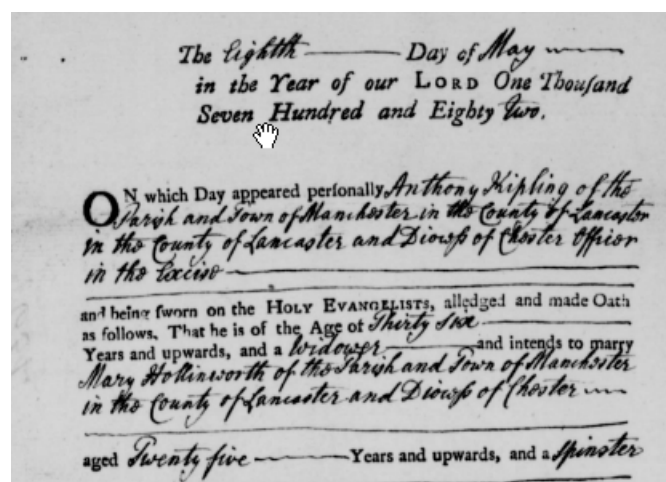 The Eighth Day of May
in the Year of our LORD One Thousand
Seven Hundred and Eighty Two.
ON which Day appeared personally Anthony Kipling of the
Parish and Town of Manchester in the County of Lancaster
in the County of Lancaster and Diocess of Chester Officer
in the Excise
and being sworn on the HOLY EVANGELISTS, alledged and made Oath
as follows, That he is of the Age of Thirty six
Years and upwards, and a Widower and intends to marry
Mary Hollinworth of the Parish and Town of Manchester
in the County of Lancaster and Diocess of Chester
aged Twenty five Years and upwards, and a Spinster